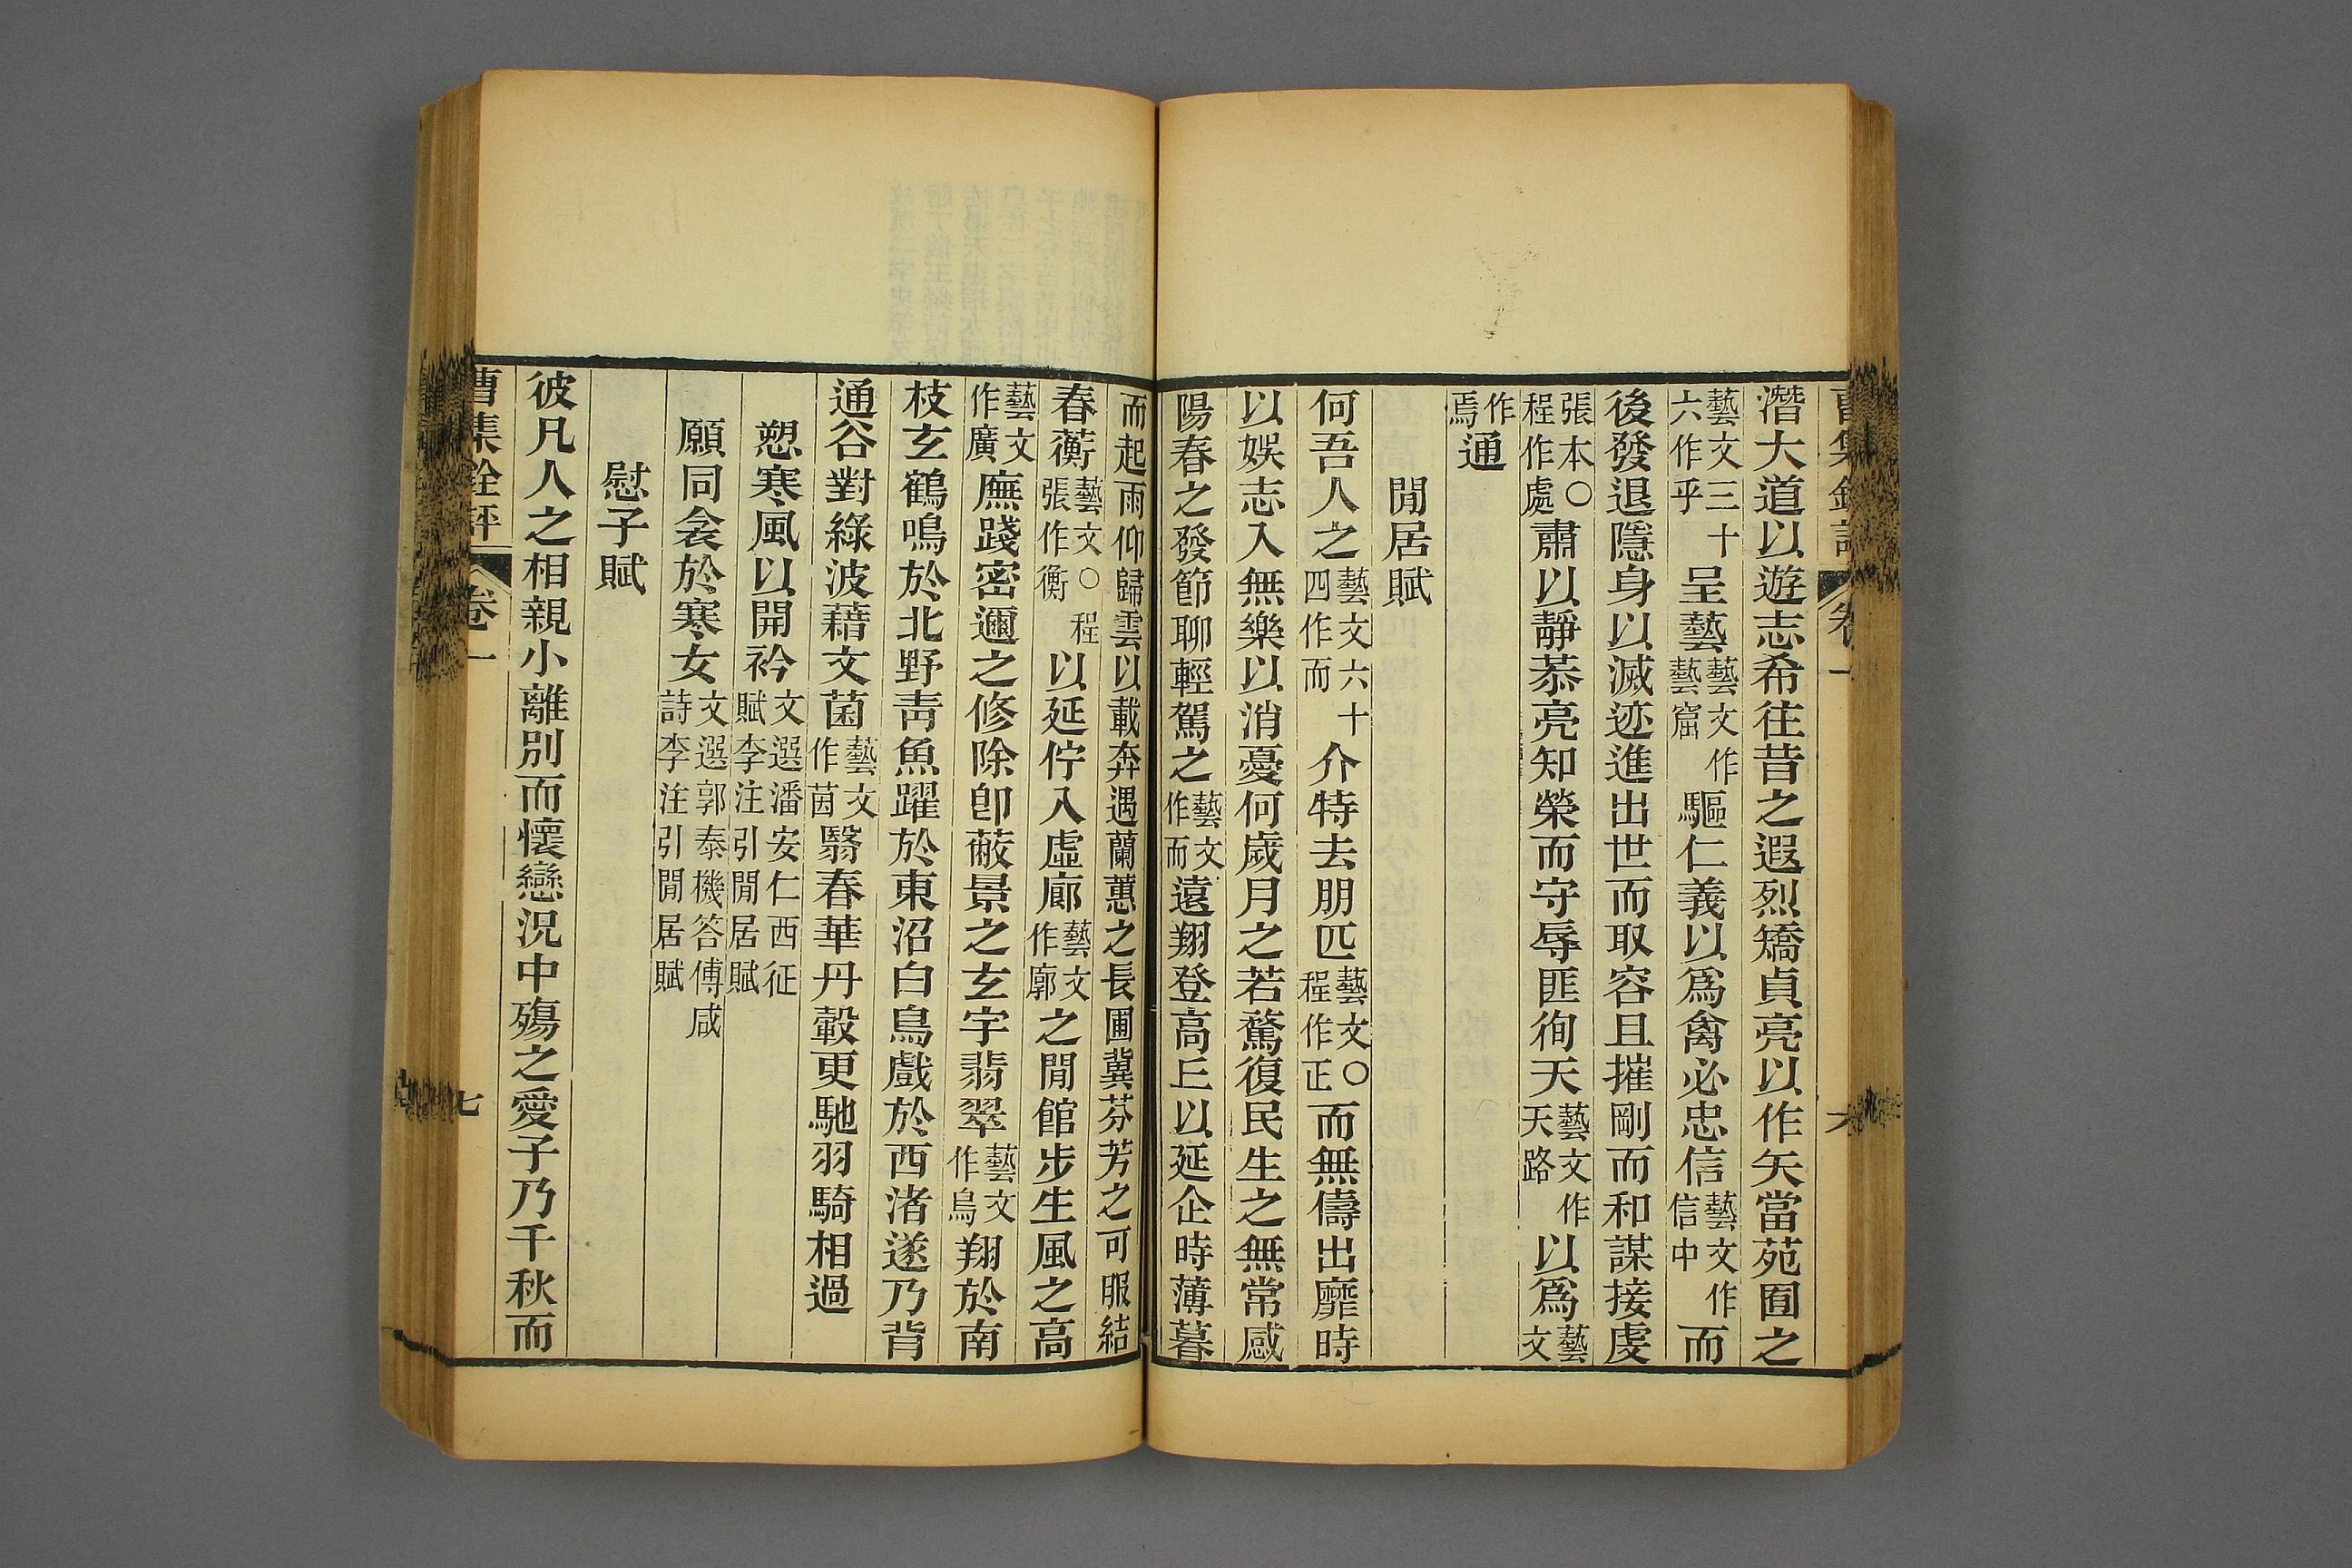 曹集銓評 卷一 六
潛大道以遊志希往昔之遐烈矯貞亮以作矢當苑囿之
藝文三十六作乎呈藝藝文作藝窟驅仁義以爲禽必忠信藝文作信中而
後發退隱身以滅迹進出世而取容且摧剛而和謀接處
張本〇程作處肅以靜恭亮知榮而守辱匪徇天藝文作天路以爲藝文
作焉通
閒居賦
何吾人之藝文六十四作而介特去朋匹藝文〇程作正而無儔出靡時
以娛志入無樂以消憂何歲月之若騖復民生之無常感
陽春之發節聊輕駕之藝文作而遠翔登高丘以延企時薄暮
而起雨仰歸雲以載奔遇蘭蕙之長圃冀芬芳之可服結
春蘅藝文〇程張作衡以延佇入虛廊藝文作廓之閒館步生風之高
藝文作廣廡踐密邇之修除卽蔽景之玄宇翡翠藝文作鳥翔於南
枝玄鶴鳴於北野青魚躍於東沼白鳥戲於西渚遂乃背
通谷對綠波藉文茵藝文作茵翳春華丹轂更馳羽騎相過
愬寒風以開衿文選潘安仁西征賦李注引閒居賦
願同衾於寒女文選郭泰機答傅咸詩李注引閒居賦
慰子賦
彼凡人之相親小離別而懷戀況中殤之愛子乃千秋而
曹集銓評 卷一 七